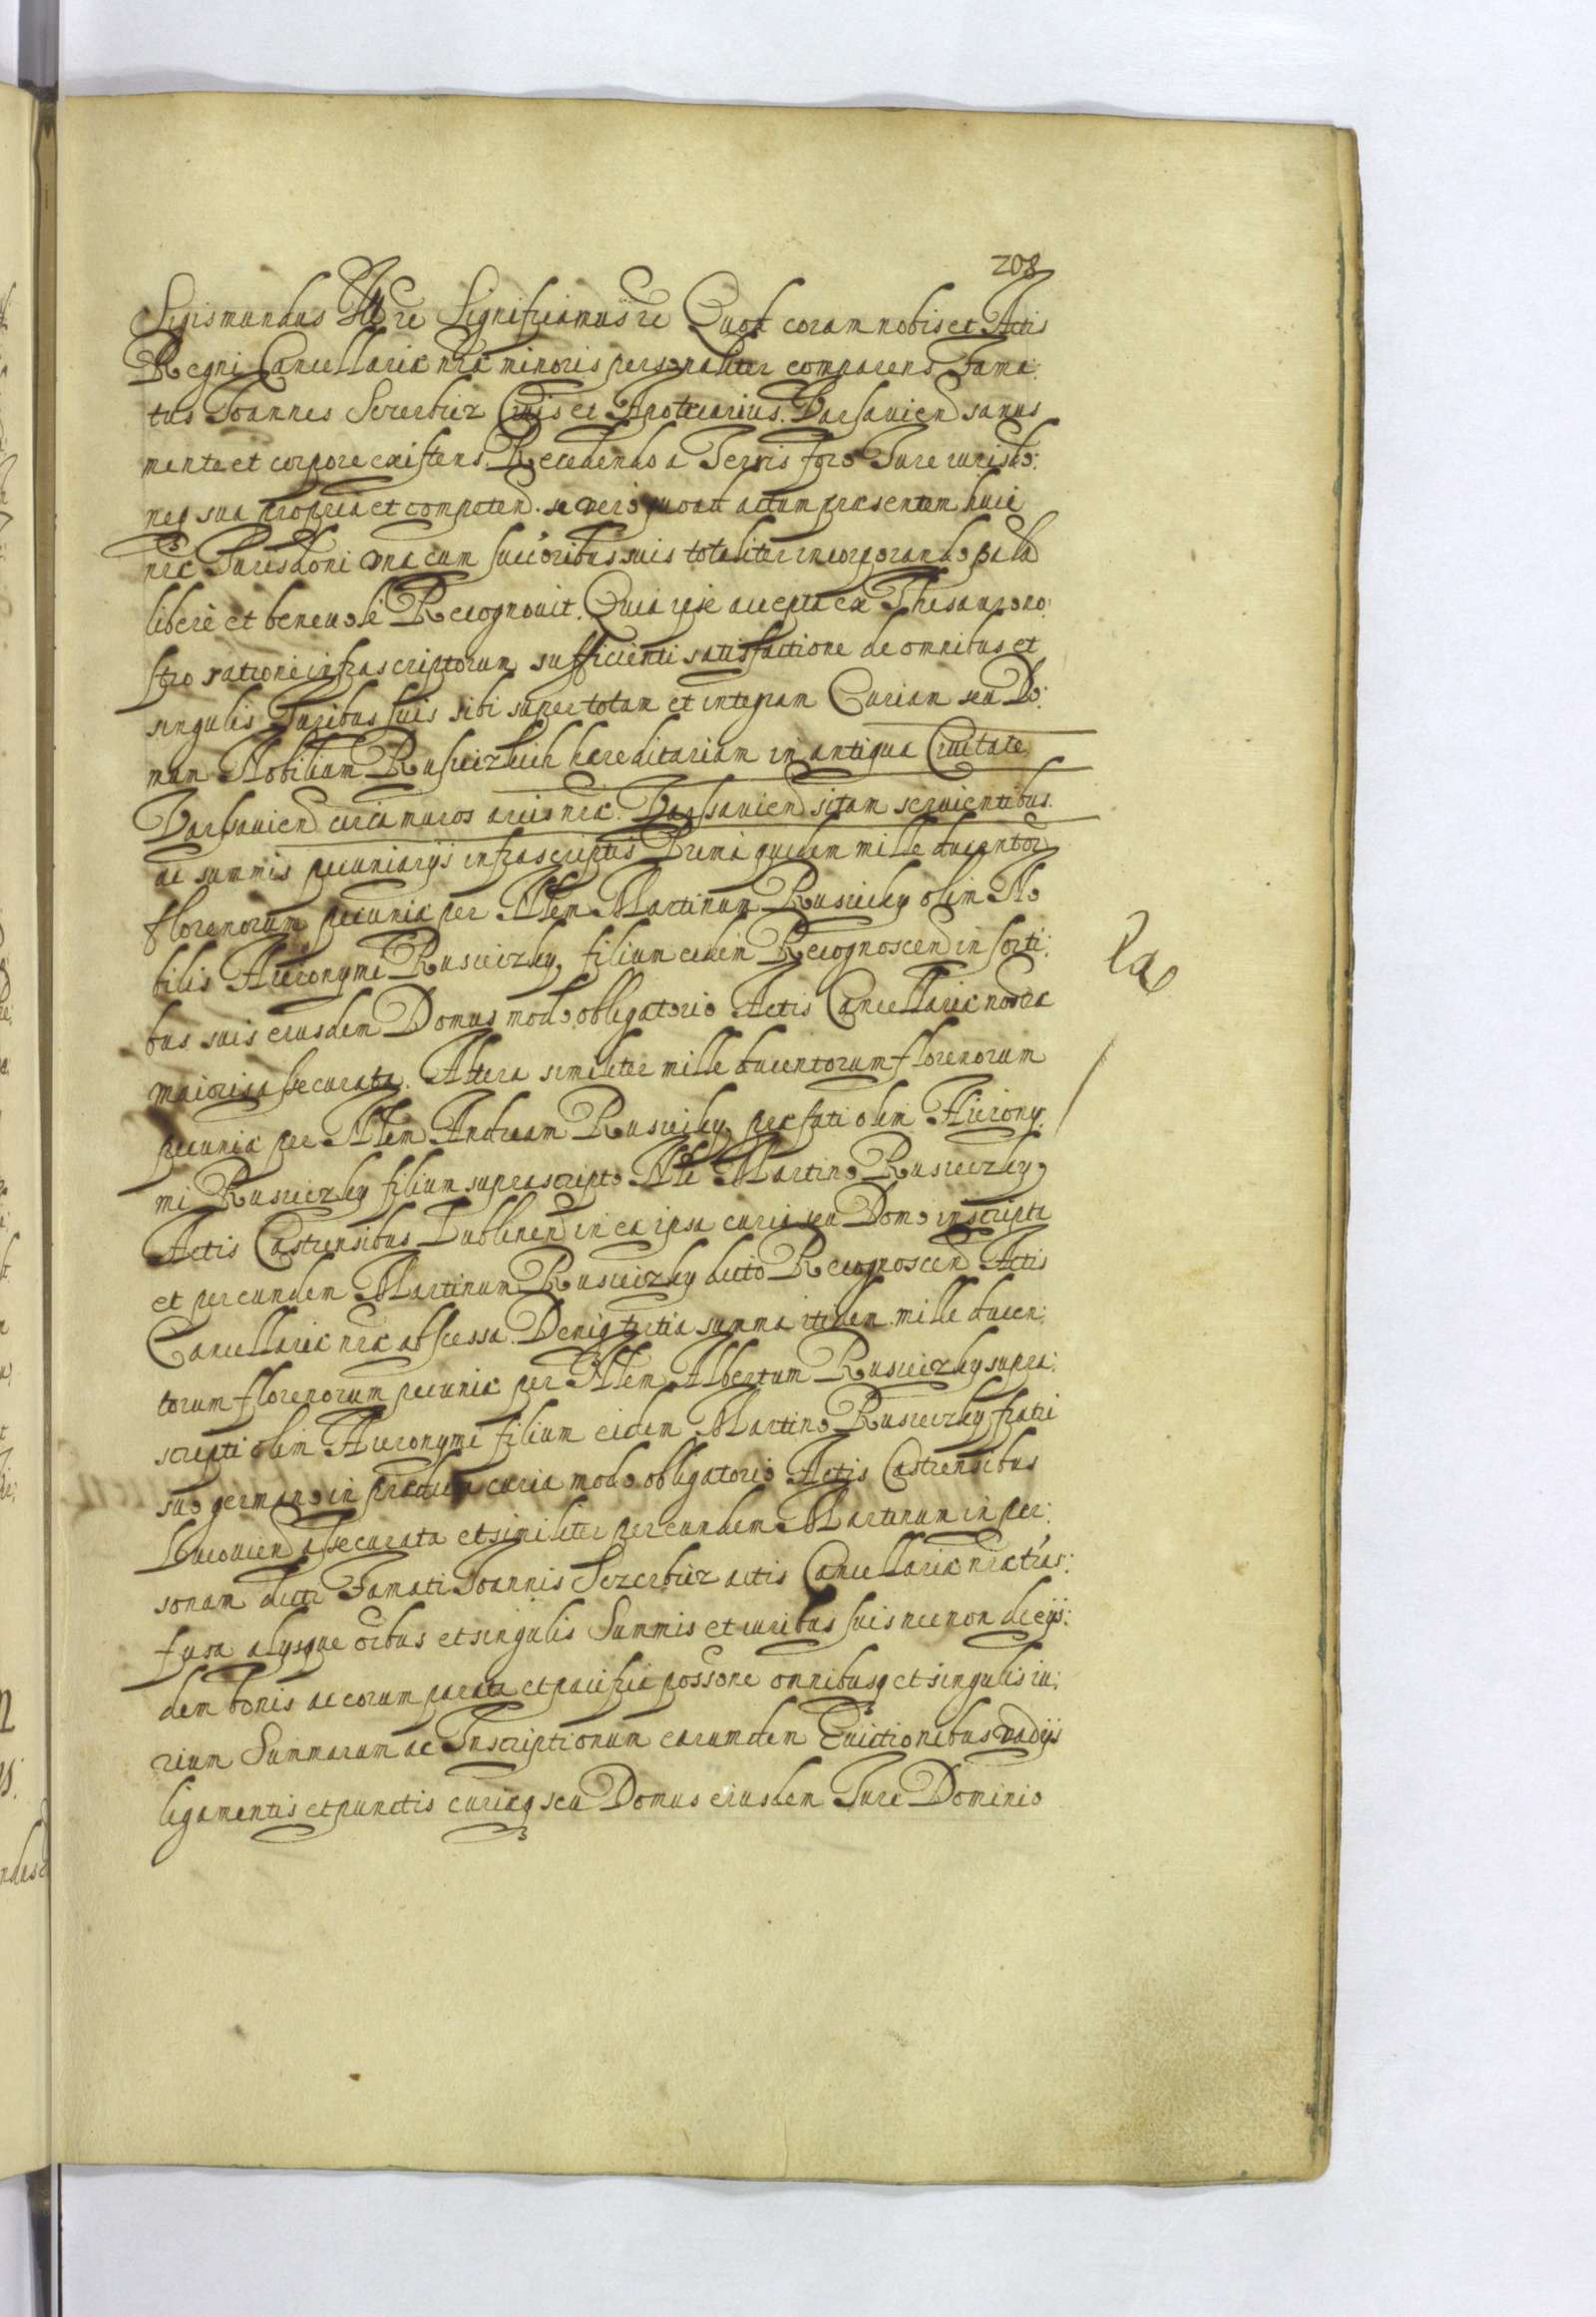 208
Sigismundus III re Significamus re Quod coram nobis et Actis
Regni Cancellariæ nræ minoris personaliter comparens Fama:
tus Joannes Sczerbicz Ciuis et Apotecarius Varsauien sanus
mente et corpore existens. Recedendo a Terris foro Jure iurisdo:
neq sua propria et competen. se vero quoad actum præsentem huic
nræ Jurisdoni una cum succoribus suis totaliter incorporando palã
libere et beneuole Recognouit. Quia ipse accepta ex Thesauro no:
stro ratione infrascriptorum sufficienti satisfactione de omnibus et
singulis Juribus suis sibi super totam et integram Curiam seu Do:
mum Nobilium Rusieczkich hæreditariam in antiqua Ciuitate
Varsauien circa muros arcis nræ Varsauien sitam seruientibus.
ac summis pecuniarijs infrascriptis Prima quidem mille ducentorũ
florenorum pecuniæ per Nlem Martinum Rusiecky olim No
bilis Hieronymi Rusieczky filium eidem Recognoscen in sorti:
bus suis eiusdem Domus modo obligatorio Actis Cancellariæ nostræ
maioris assecurata. Altera similiter mille ducentorum florenorum
pecuniæ per Nlem Andream Rusiecky præfati olim Hierony:
mi Rusieczky filium suprascripto Nli Martino Rusieczky
Actis Castrensibus Lublinen in ea ipsa curia seu Domo inscripta
et per eundem Martinum Rusieczky dicto Recognoscen Actis
Cancellariæ nræ abscessa. Deniq tertia summa itidem mille ducen:
torum florenorum pecuniæ per Nlem Albertum Rusieczky supra:
scripti olim Hieronymi filium eidem Martino Rusieczky fratri
suo germano in prædicta curia modo obligatorio Actis Castrensibus
assecurata et similiter per eundem Martinum in per:
sonam dicti Famati Joannis Sczerbicz actis Cancellariæ nræ trás:
fusa alijsque oibus et singulis Summis et iuribus suis necnon de eijs:
dem bonis ac eorum parata et pacifica possone omnibusq et singulis iu:
rium Summarum ac Inscriptionum earumdem Euictionibus vadijs
ligamentis et punctis curiæq seu Domus eiusdem Jure Dominio